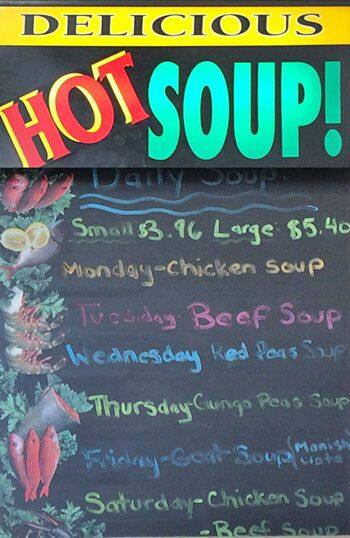 DELICIOUS
HOT SOUP!
Daily Soup:
Small $3.96 Large: $5.40
Monday-Chicken soup
Tuesday- Beef Soup
Wednesday Red Peas Soup
Thursday-Gungo Peas Soup
Friday-Goat Soup (Manish Wata)
Saturday-Chicken Soup
-Beef Soup